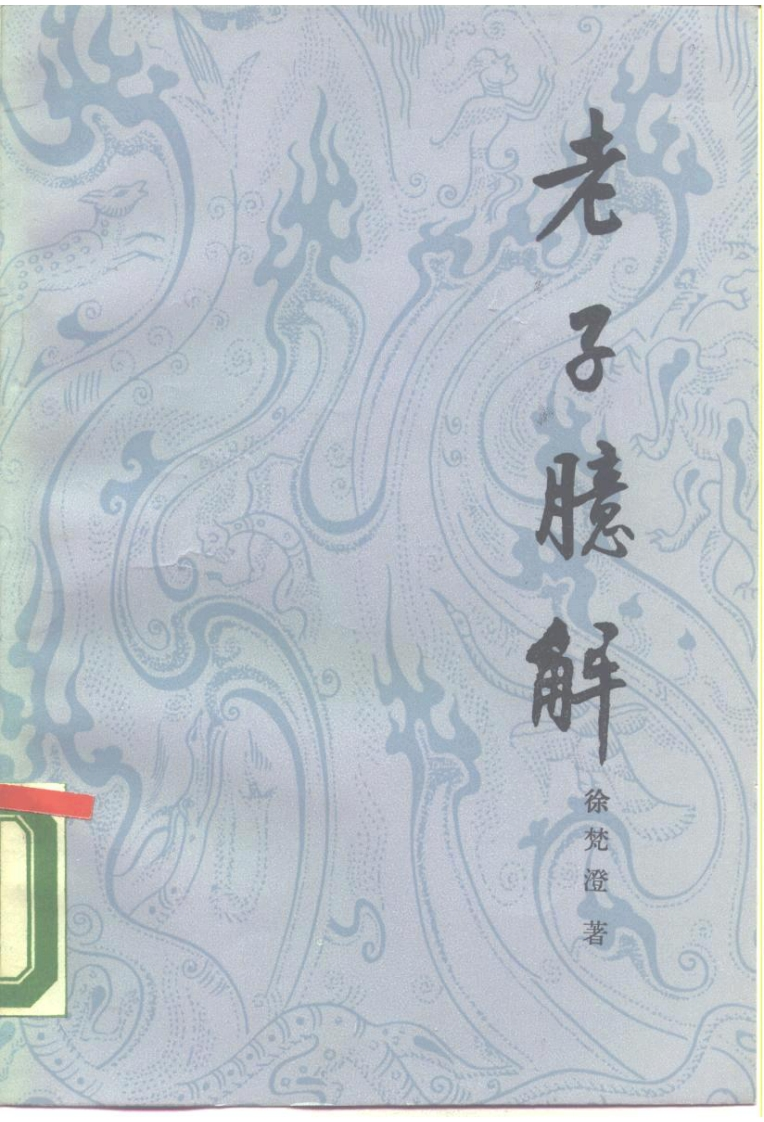 老子臆解
徐梵澄著